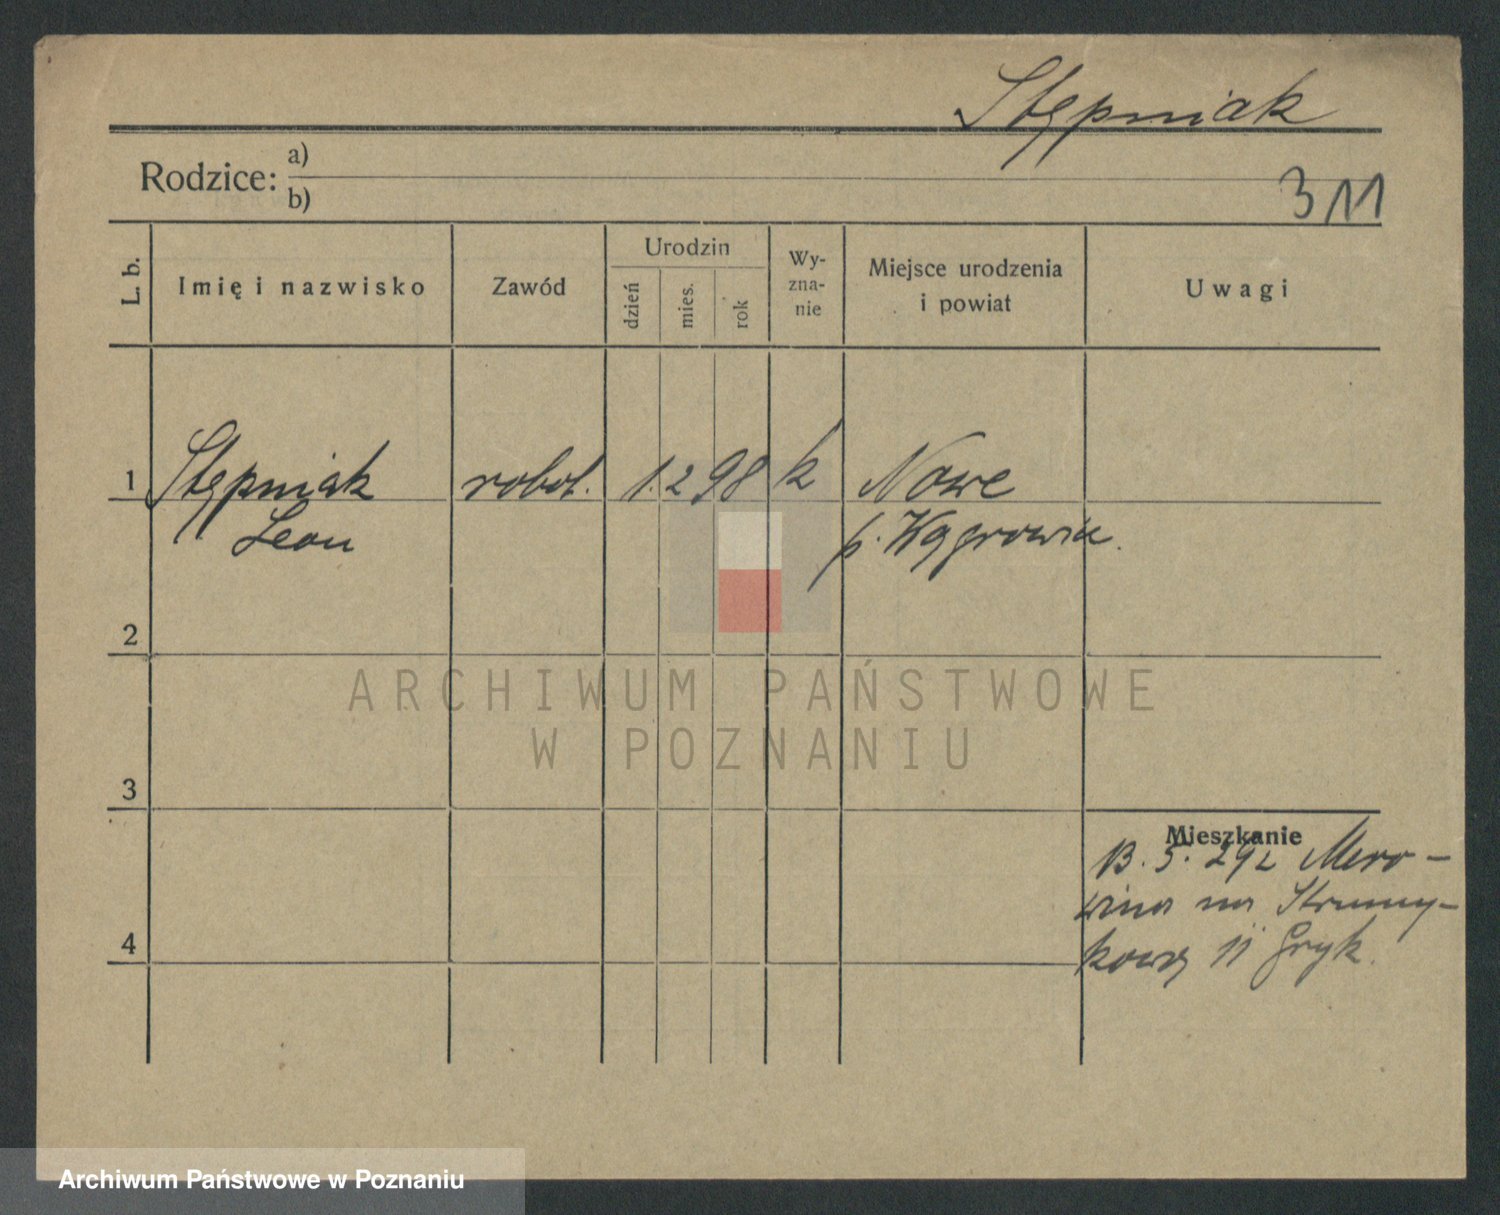 Stępniak
Rodzice: a)
b)
311
L. b.
Imię i nazwisko
Zawód
Urodzin
dzień
mies.
rok
Wy-
zna-
nie
Miejsce urodzenia
i powiat
Uwagi
1 Stępniak robot. 1. 2 98 k Nowe
Leon p. Wągrowiec.
2
ARCHIWUM PAŃSTWOWE
W POZNANIU
3
Mieszkanie
13. 5. 292
4
Gryk.
Archiwum Państwowe w Poznaniu